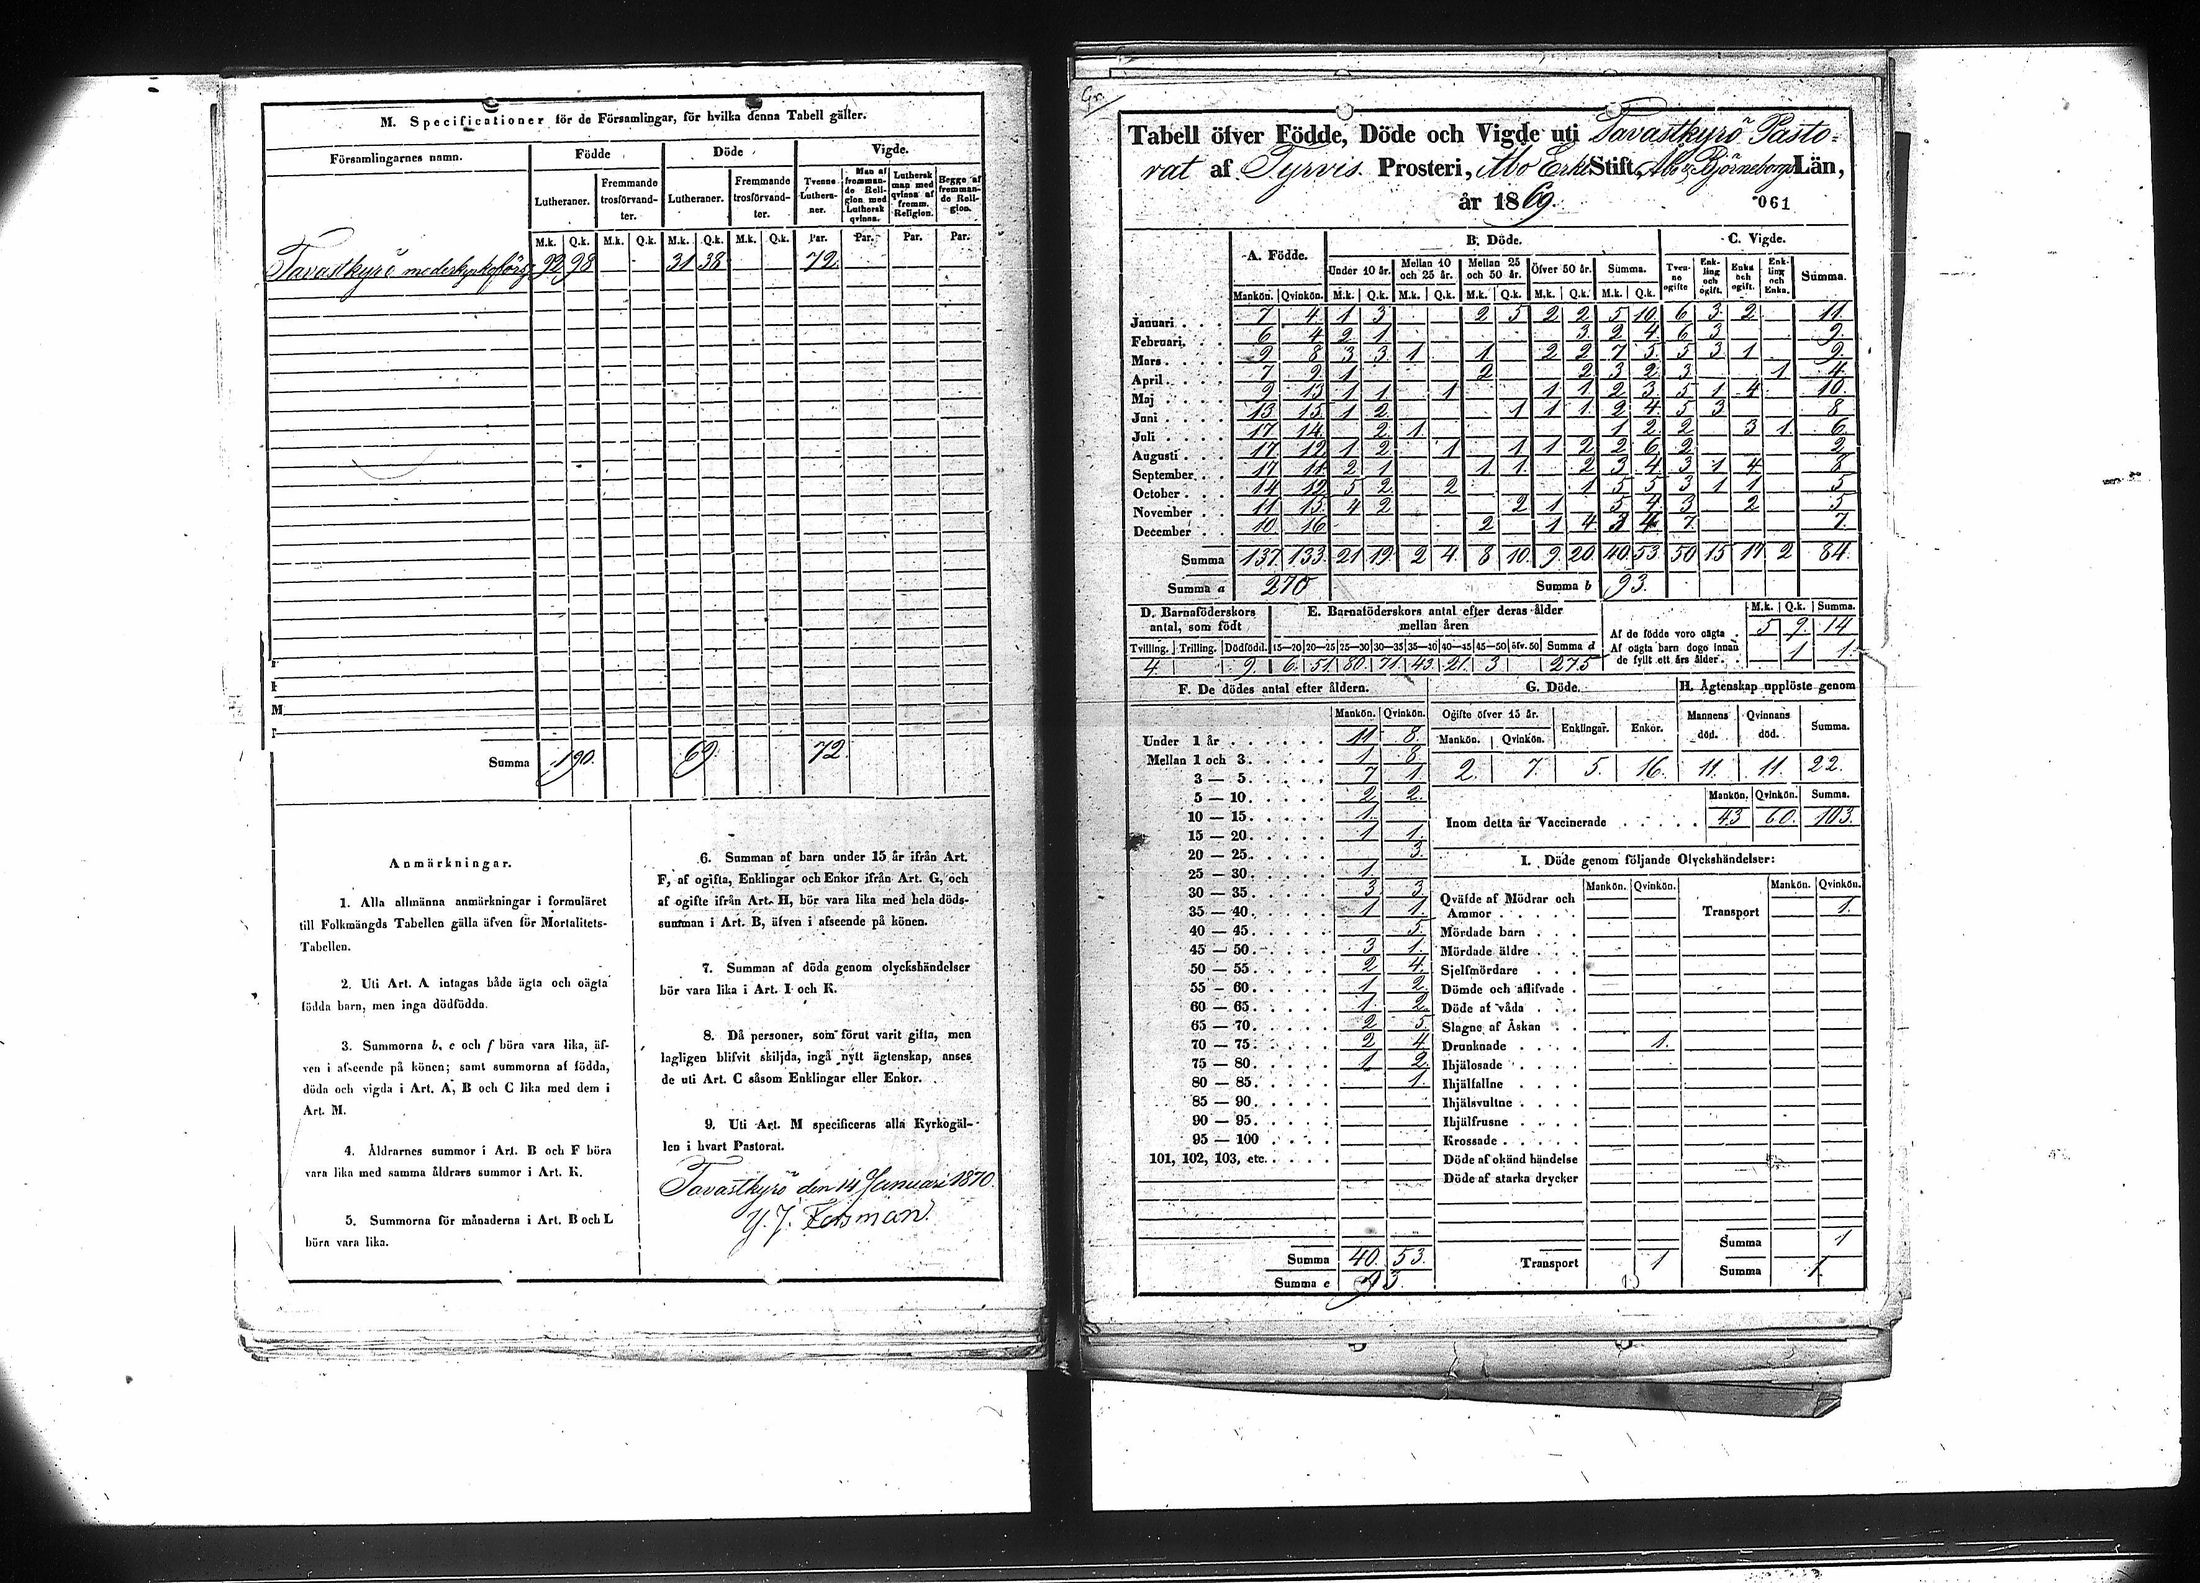 M. Specificationer för de Församlingar, för hvilka denna Tabell gäller.
Församlingarnes namn. Födde Döde Vigde.
Lutheraner. Fremmande trosförvandter. Lutheraner. Fremmande trosförvandter. Tvenne Lutheraner. Man af fremmande Religion med Luthersk qvinna. Luthersk man med qvinna af fremm. Religion. Begge af fremmande Religion.
M.k. Q.k. M.k. Q.k. M.k. Q.k. M.k. Q.k. Par. Par. Par. Par.
Tavastkyrö moderkyrkoförs. 92 98 31 38 72
Summa 190. 69. 72.
Anmärkningar.
1. Alla allmänna anmärkningar i formuläret
till Folkmängds Tabellen gälla äfven för Mortalitets-
Tabellen.
2. Uti Art. A intagas både ägta och oägta
födda barn, men inga dödfödda.
3. Summorna b, e och f böra vara lika, äf-
ven i afseende på könen; samt summorna af födda,
döda och vigda i Art. A, B och C lika med dem i
Art. M.
4. Åldrarnes summor i Art. B och F böra
vara lika med samma åldrars summor i Art. K.
5. Summorna för månaderna i Art. B och L
böra vara lika.
6. Summan af barn under 15 år ifrån Art.
F, af ogifta, Enklingar och Enkor ifrån Art. G, och
af ogifte ifrån Art. H, bör vara lika med hela döds-
summan i Art. B, äfven i afseende på könen.
7. Summan af döda genom olyckshändelser
bör vara lika i Art. I och K.
8. Då personer, som förut varit gifta, men
lagligen blifvit skiljda, ingå nytt ägtenskap, anses
de uti Art. C såsom Enklingar eller Enkor.
9. Uti Art. M specificeras alla Kyrkogäl-
len i hvart Pastorat.
Tavastkyrö den 14 Januari 1870.
Tabell öfver Födde, Döde och Vigde uti Tavastkyrö Pasto-
rat af Tyrvis Prosteri, Åbo Erke Stift, Åbo & Björneborgs Län,
år 1869.
061
A. Födde. B. Döde. C. Vigde.
Under 10 år. Mellan 10 och 25 år. Mellan 25 och 50 år. Öfver 50 år. Summa. Tvenne ogifte Enkling och ogift. Enka och ogift. Enkling och Enka. Summa.
Mankön. Qvinkön. M.k. Q.k. M.k. Q.k. M.k. Q.k. M.k. Q.k. M.k. Q.k.
Januari 7 4 1 3 2 5 2 2 5 10 6 3 2 11
Februari 6 4 2 1 3 2 4 6 3 9.
Mars 9 8 3 3 1 1 2 2 7 5 5 3 1 9.
April 7 9 1 2 2 3 2 3 1 4
Maj 9 13 1 1 1 1 1 2 3 5 1 4 10.
Juni 13 15 1 2 1 1 1 2 4 5 3 8
Juli 17 14 2 1 1 2 2 3 1 6
Augusti 17 12 1 2 1 1 1 2 2 6 2 2
September 17 11 2 1 1 1 2 3 4 3 1 4 8
October 14 12 5 2 2 1 5 5 3 1 1 5
November 11 15 4 2 2 1 5 4 3 2 5
December 10 16 2 1 4 3 4 7 7.
Summa 137 133 21 19 2 4 8 10 9 20 40 53 50 15 17 2 84.
Summa a 270 Summa b 93.
D. Barnaföderskors antal, som födt
E. Barnaföderskors antal efter deras ålder mellan åren
M.k. Q.k. Summa.
Af de födde voro oägta 5 9 14
Af oägta barn dogo innan de fyllt ett års ålder 1 1
Tvilling. Trilling. Dödfödd. 15–20 20–25 25–30 30–35 35–40 40–45 45–50 öfv. 50 Summa d
4 9. 6. 51 80 71 43 21 3 275
F. De dödes antal efter åldern.
Mankön. Qvinkön.
Under 1 år 11 8
Mellan 1 och 3 1 8
3 — 5 7 1
5 — 10 2 2
10 — 15 1
15 — 20 1 1
20 — 25 3
25 — 30 1
30 — 35 3 3
35 — 40 1 1
40 — 45 5
45 — 50 3 1
50 — 55 2 4
55 — 60 1 2
60 — 65 1 2
65 — 70 2 5
70 — 75 2 4
75 — 80 1 2
80 — 85 1.
85 — 90
90 — 95
95 — 100
101, 102, 103, etc.
Summa 40. 53.
Summa e 93.
G. Döde. H. Ägtenskap upplöste genom
Ogifte öfver 15 år. Enklingar. Enkor. Mannens död. Qvinnans död. Summa.
Mankön. Qvinkön.
2. 7. 5. 16. 11. 11. 22.
Mankön. Qvinkön. Summa.
Inom detta år Vaccinerade 43 60. 103.
I. Döde genom följande Olyckshändelser:
Mankön. Qvinkön. Mankön. Qvinkön.
Qväfde af Mödrar och Ammor Transport 1.
Mördade barn
Mördade äldre
Sjelfmördare
Dömde och aflifvade
Döde af våda
Slagne af Åskan
Drunknade 1.
Ihjälosade
Ihjälfallne
Ihjälsvultne
Ihjälfrusne
Krossade
Döde af okänd händelse
Döde af starka drycker
Summa 1
Transport 1 Summa 1.